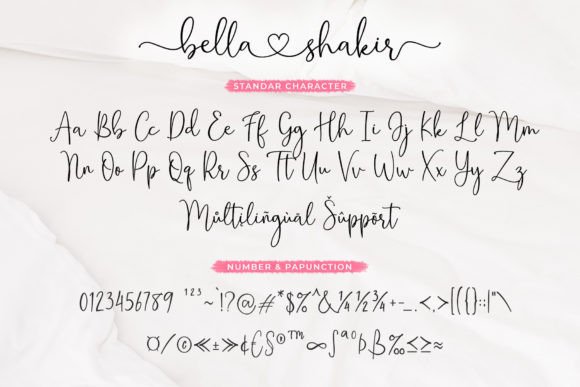 bella♡shakir
STANDAR CHARACTER
Aa Bb Cc Dd Ee Ff Gg Hh Ii Jj Kk Ll Mm
Nn Oo Pp Qq Rr Ss Tt Uu Vv Ww Xx Yy Zz
Mûltiliñgùãl Šûppört
NUMBER & PAPUNCTION
0123456789 ¹²³~`!?@#*$%^&¼½¾+-_.<,>[({}:;|"\
¤/©≪±≫¢€§®™∞∫ªºÞß‰≤≥≈